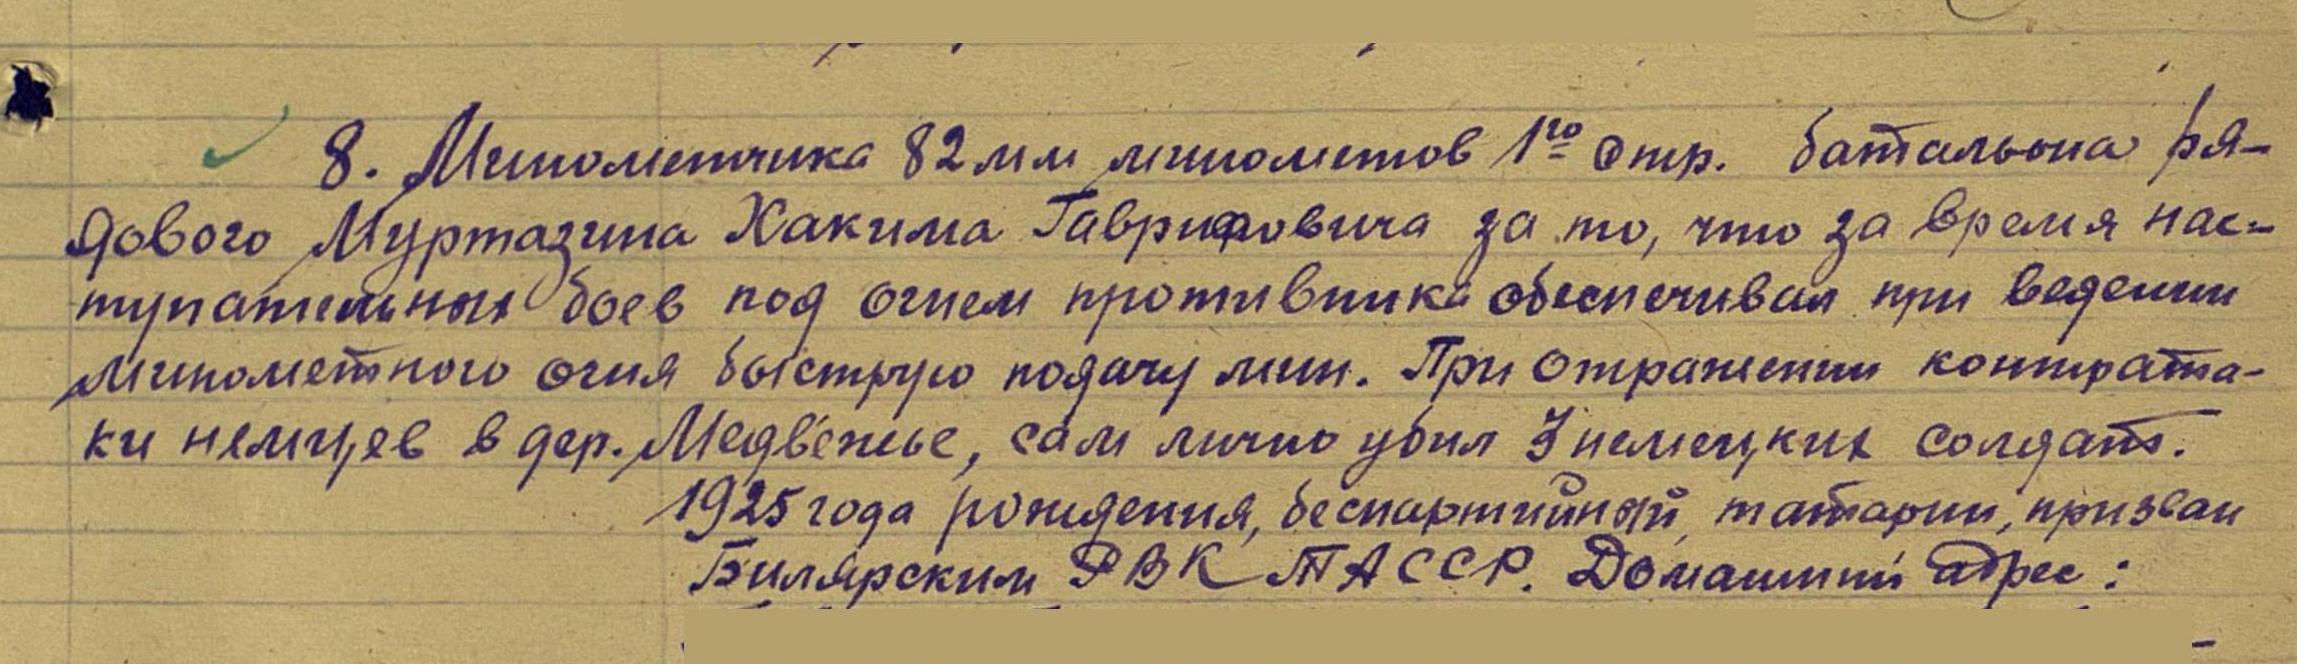 8. Минометчика 82 мм минометов 1го стр. батальона ря-
дового Муртазина Хакима Гаврифовича за то, что за время нас-
тупательных боев под огнем противника обеспечивал при ведении
минометного огня быструю подачу мин. При отражении контрата-
ки немцев в дер. Медвежье, сам лично убил 3 немецких солдат.
1925 года рождения, беспартийный, татарин, призван
Билярским РВК ТАССР. Домашний адрес: